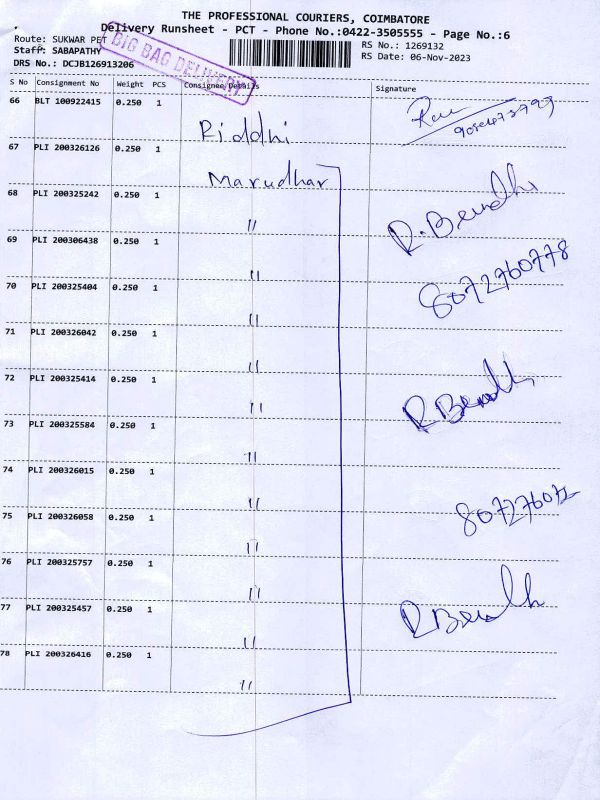 THE PROFESSIONAL COURIERS, COIMBATORE
Delivery Runsheet - PCT - Phone No.:0422-3505555 - Page No.:6
Route: SUKWAR PET
RS No.: 1269132
Staff: SABAPATHY
RS Date: 06-Nov-2023
DRS No.: DCJB126913206
BIG BAG DELIVERY
S No Consignment No Weight PCS Consignee Details Signature
66 BLT 100922415 0.250 1 Riddhi
67 PLI 200326126 0.250 1 Marudhar
68 PLI 200325242 0.250 1 "
R. Bendhi
69 PLI 200306438 0.250 1 "
8072760778
70 PLI 200325404 0.250 1 "
71 PLI 200326042 0.250 1 "
72 PLI 200325414 0.250 1 "
73 PLI 200325584 0.250 1 "
74 PLI 200326015 0.250 1 "
75 PLI 200326058 0.250 1 "
76 PLI 200325757 0.250 1 "
77 PLI 200325457 0.250 1 "
78 PLI 200326416 0.250 1 "